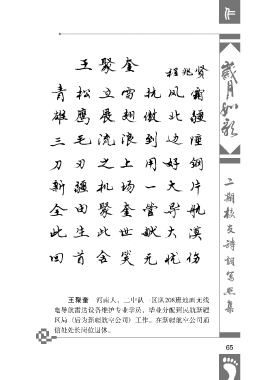 作
岁月如歌
二期校友诗词写照集
王聚奎
程兆贤
青松立雪抗风霜
雄鹰展翅傲北疆
三毛流浪到边陲
刀刃之上用好钢
新疆机场一大片
全由聚奎管导航
此生此世献大漠
回首含笑无忧伤
王聚奎 河南人，二中队一区队208班地面无线
电导航雷达设备维护专业学员，毕业分配到民航新疆
区局（后为新疆航空公司）工作。在新疆航空公司通
信处处长岗位退休。
65